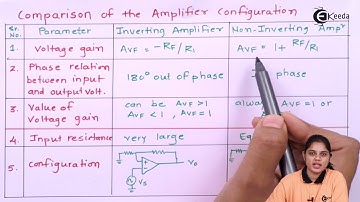 Comparison of the Amplifier Configuration
Ekeeda
Sr. No. Parameter Inverting Amplifier Non-Inverting Ampr
1. Voltage gain AVF = -RF/R1 AVF = 1+ RF/R1
2. Phase relation between input and output volt. 180° out of phase phase
3. Value of Voltage gain can be AVF >1 AVF <1, AVF =1 always AVF =1 or
4. Input resistance very large
5. Configuration Vo
Vs